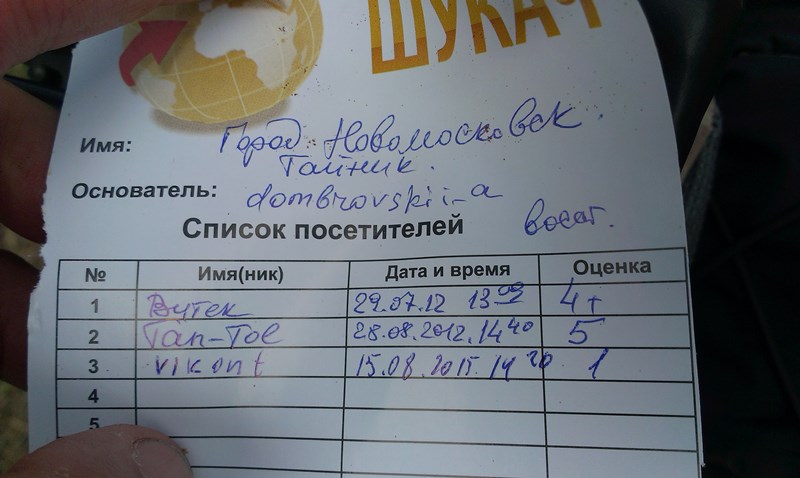 ШУКАЧ
Имя: Город Новомосковск.
Тайник.
Основатель: dombrovskii-a
Список посетителей
№ Имя(ник) Дата и время Оценка
1 Вутек 29.07.12 13 09 4+
2 Tan-Tol 28.08.2012. 14 40 5
3 vikont 15.08.2015. 14 20 1
4
5